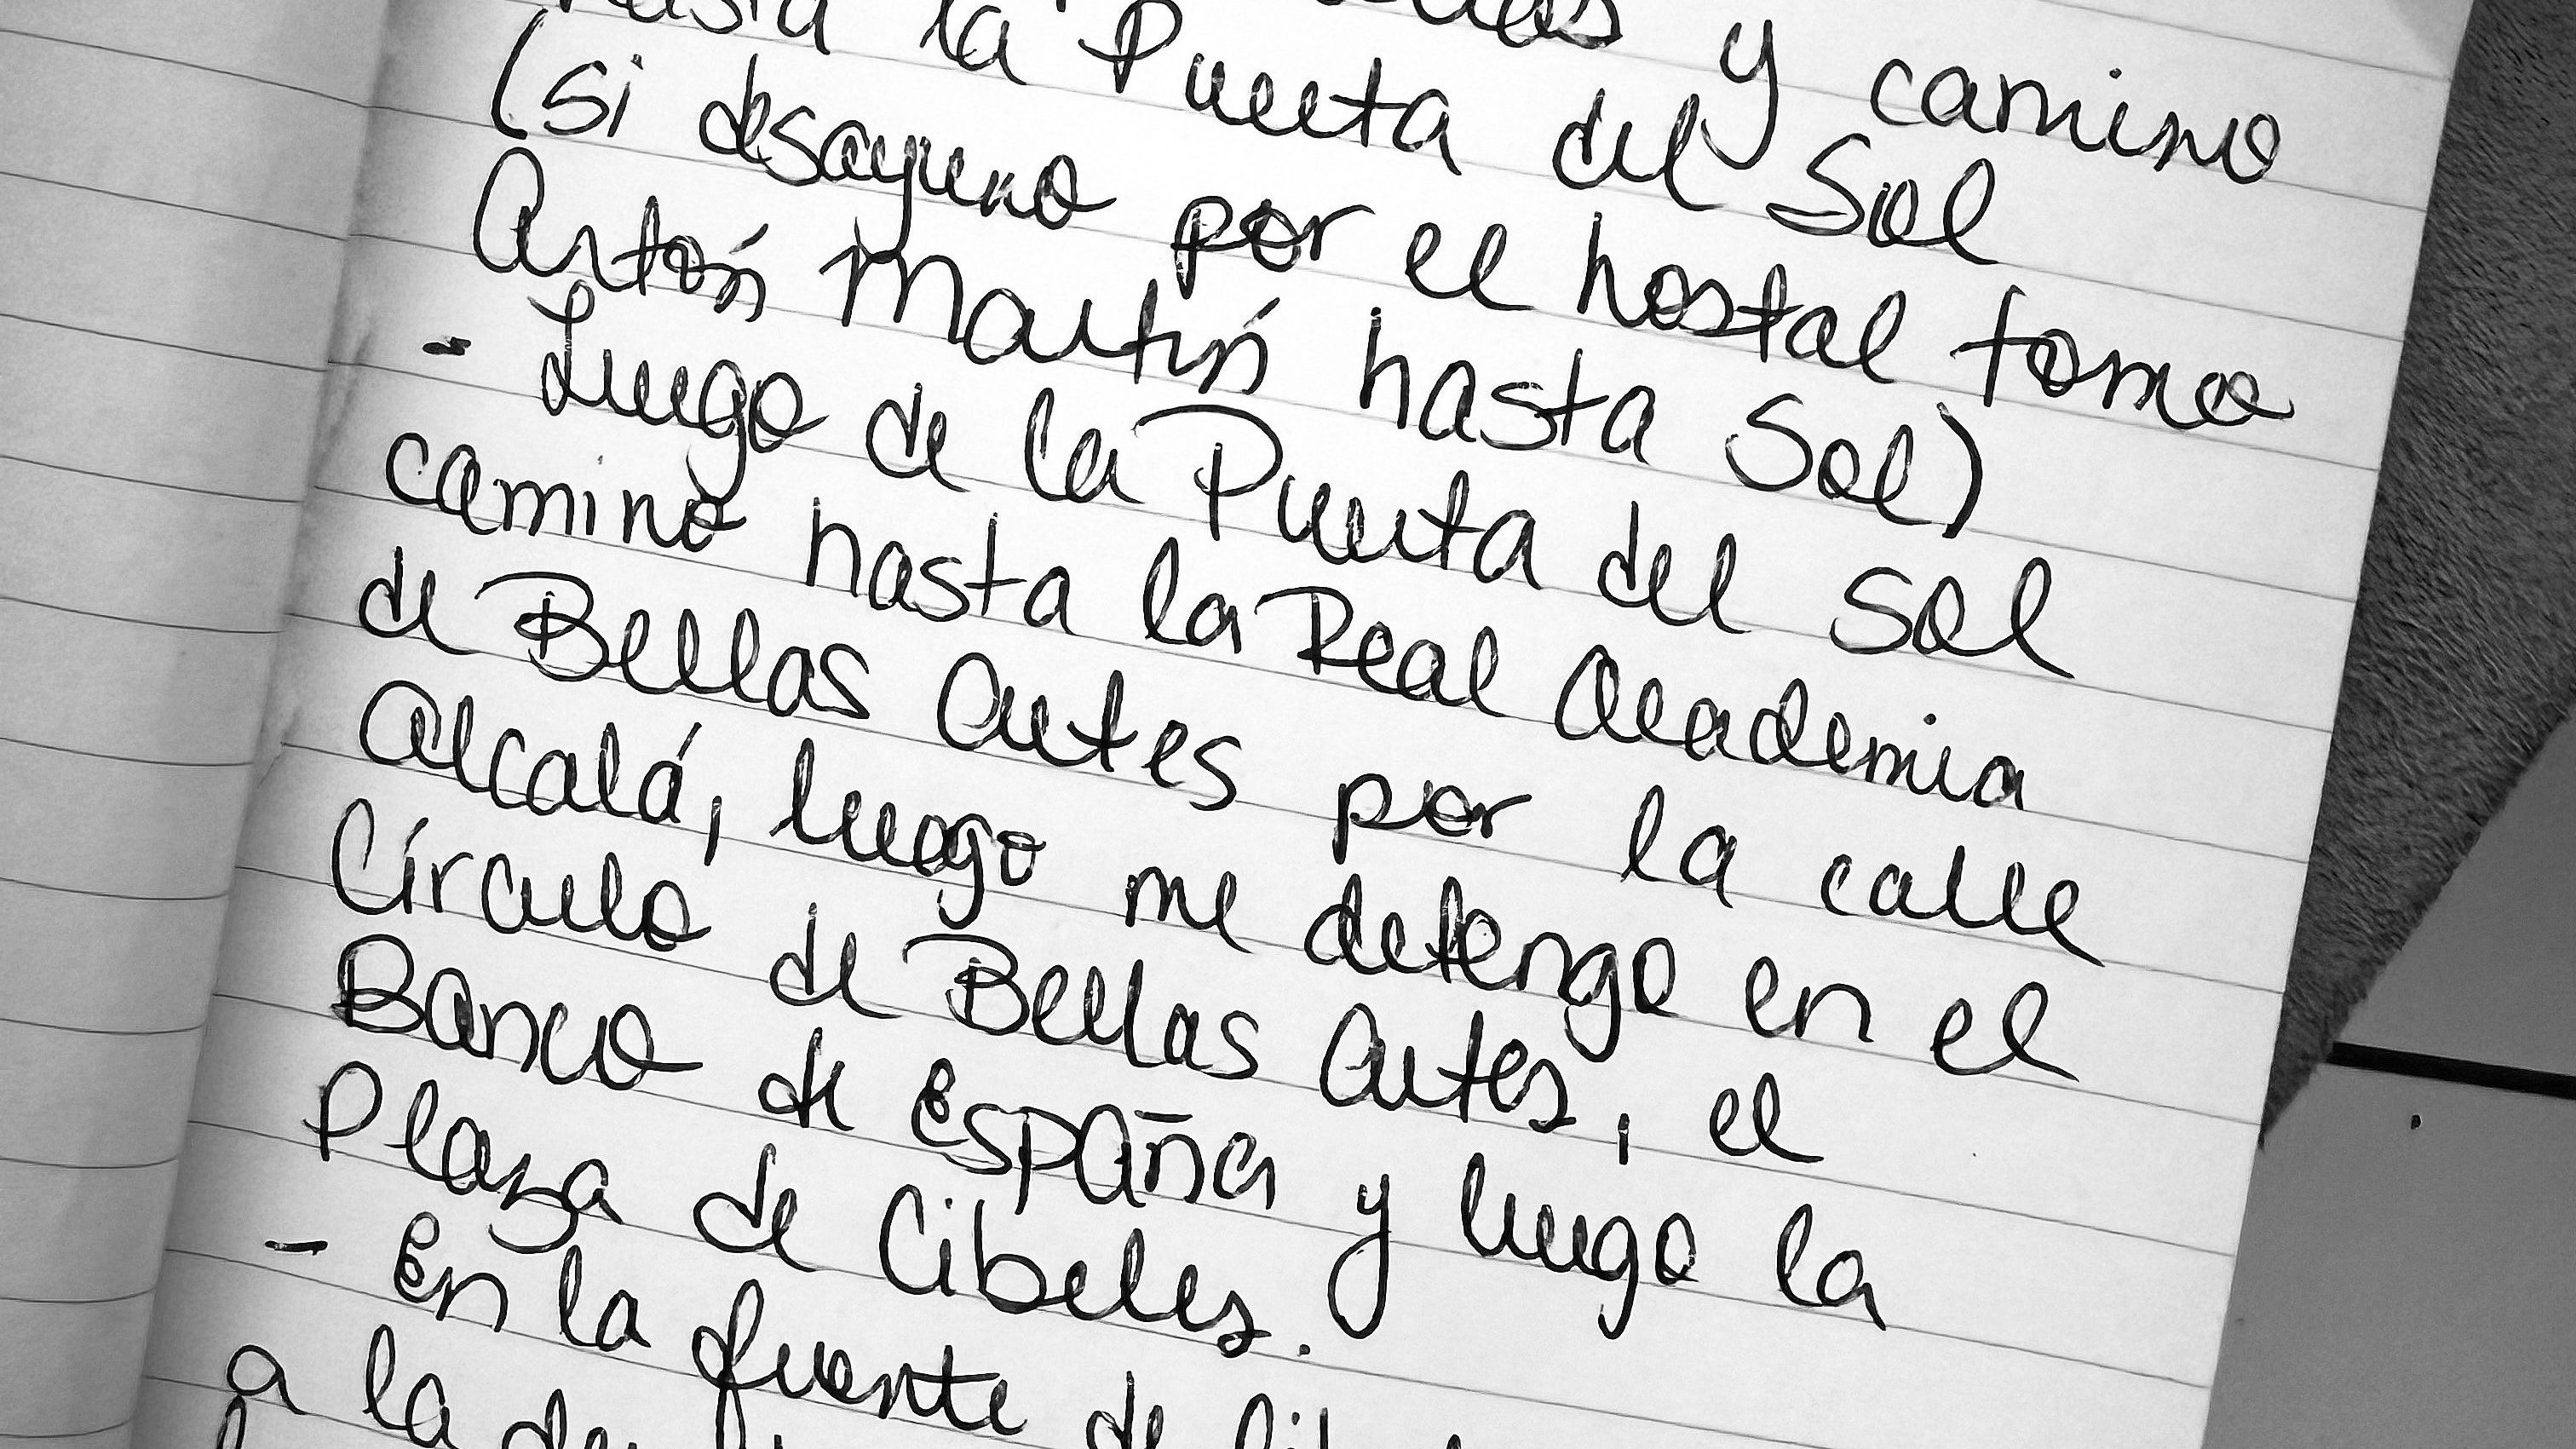 y camino
hasta la Puerta del Sol
(si desayuno por el hostal tomo
Antón Martín hasta Sol)
- Luego de la Puerta del Sol
camino hasta la Real Academia
de Bellas Artes por la calle
Alcalá, luego me detengo en el
Círculo de Bellas Artes, el
Banco de España y luego la
Plaza de Cibeles.
- En la fuente de
a la